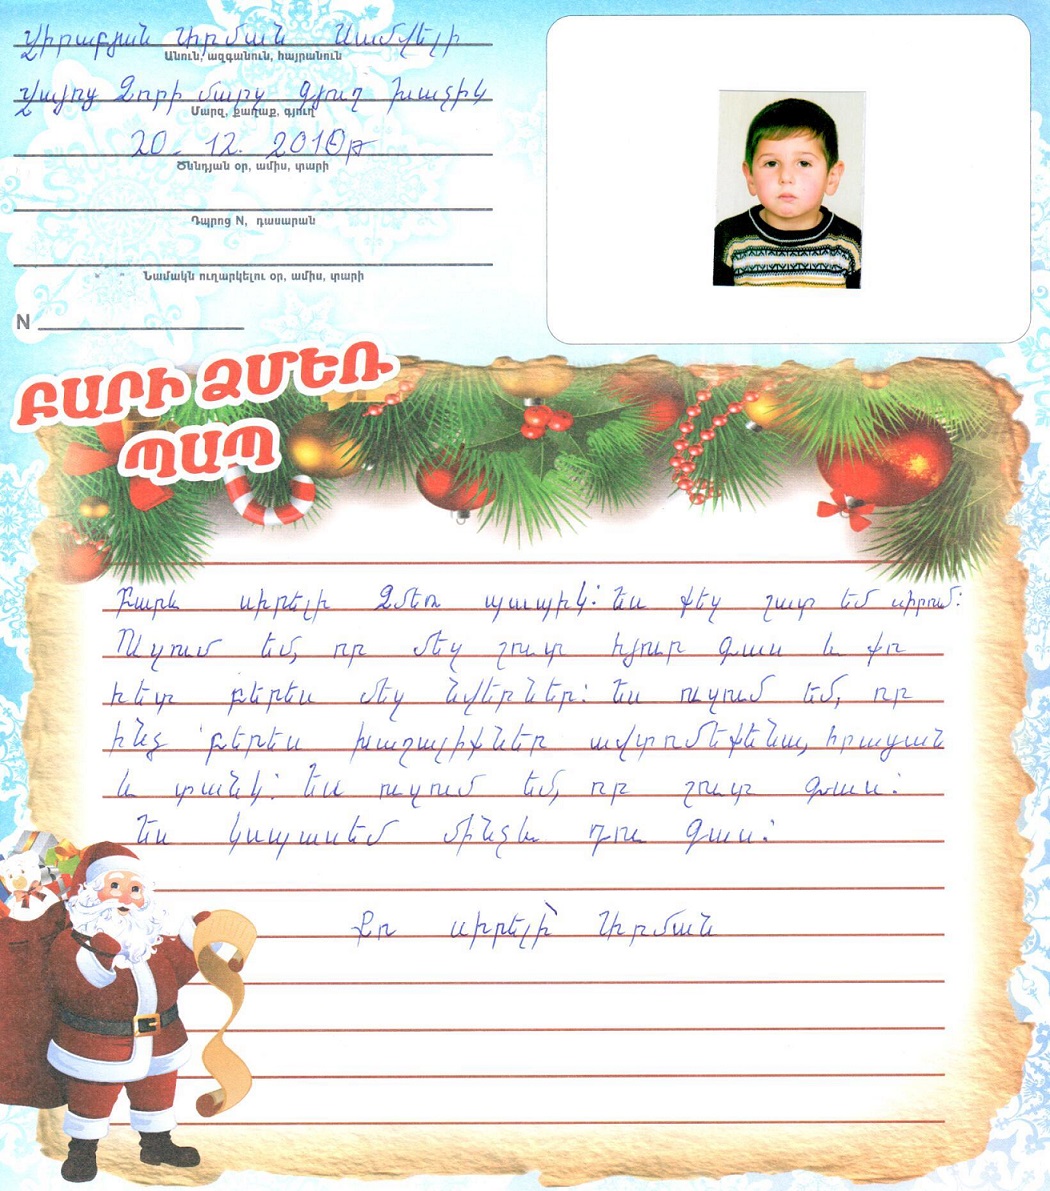 Վիրաբյան Նիրման Սամվելի
Անուն, ազգանուն, հայրանուն
Վայոց Ձորի մարզ Գյուղ Խաչիկ
Մարզ, քաղաք, գյուղ
20. 12. 2010թ
Ծննդյան օր, ամիս, տարի
Դպրոց N, դասարան
Նամակն ուղարկելու օր, ամիս, տարի
N
ԲԱՐԻ ՁՄԵՌ
ՊԱՊ
Բարև սիրելի Ձմեռ պապիկ: Ես քեզ շատ եմ սիրում:
Ուզում եմ, որ մեզ շուտ հյուր գաս և քո
հետ բերես մեզ նվերներ: Ես ուզում եմ, որ
ինձ բերես խաղալիքներ ավտոմեքենա, հրացան
և տանկ: Ես ուզում եմ, որ շուտ գաս:
Ես կսպասեմ մինչև դու գաս:
Քո սիրելի՝ Նիրման